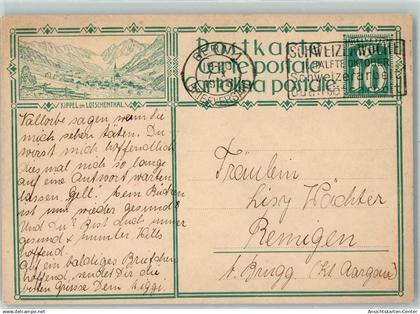 Postkarte
Carte postale
Cartolina postale
BERN
BRIEFVERSAND
SCHWEIZER WOCHE
HÄLFTE OKTOBER
Schweizerarbeit
10
KIPPEL IM LÖTSCHENTHAL
Vallorbe sagen wenn sie
mich sehen täten. Du
wirst mich hoffentlich
diesmal nich so lange
auf eine Antwort warten
lassen, Gell! Mein
ist nun wieder gesund!
Und Du? Bist auch immer
gesund & munter. Wills
hoffend.
Auf ein baldiges Briefchen
hoffend, sendet Dir die
besten Grüsse Dein
Fräulein
Lisy Wächter
Remigen
b. Brugg (Kt Aargau)
www.ansichtskartenversand.com